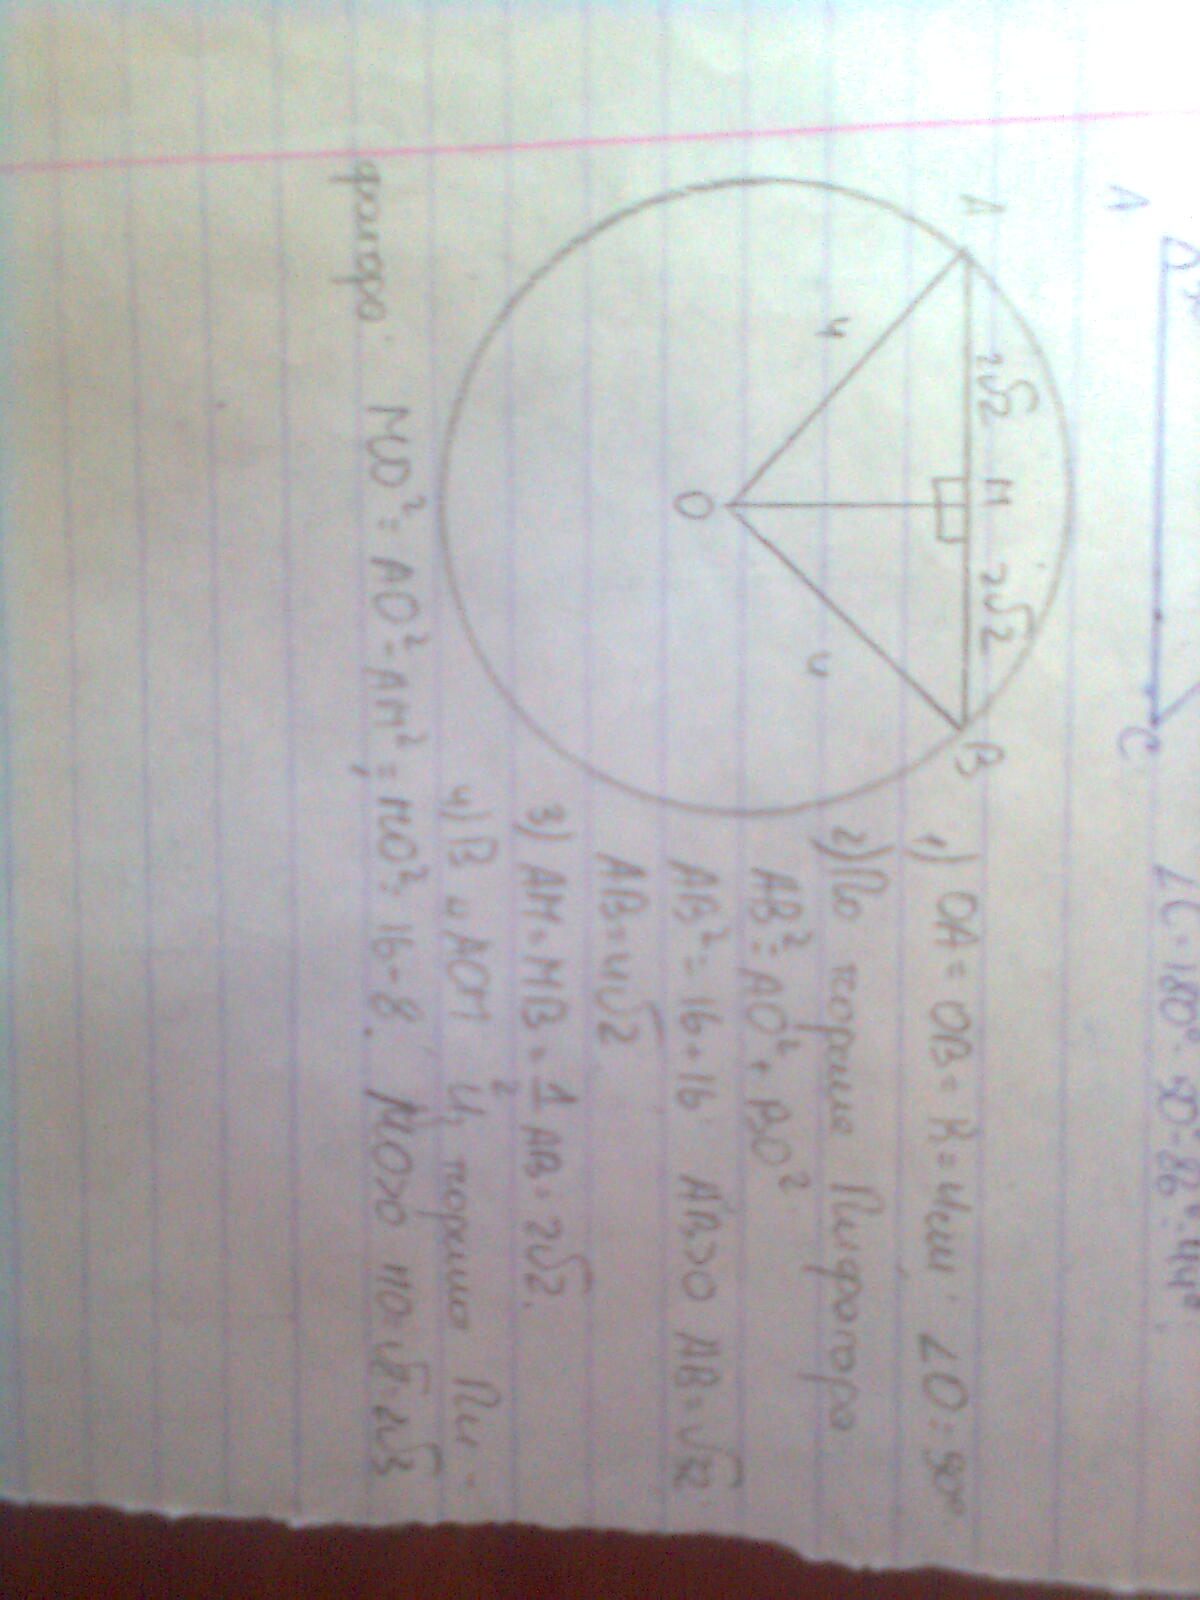 A C
∠C = 180° - 90° - 86° = 44°
A 2√2 M 2√2 B
4 4
O
1) OA = OB = R = 4см. ∠O = 90°
2) По теорема Пифагора
AB² = AO² + BO²
AB² = 16 + 16. AB>0 AB = √32.
AB = 4√2
3) AM = MB = 1/2 AB = 2√2.
4) В AOM теорему Пи-
фагора. MO² = AO² - AM²; MO² = 16 - 8. MO>0 MO